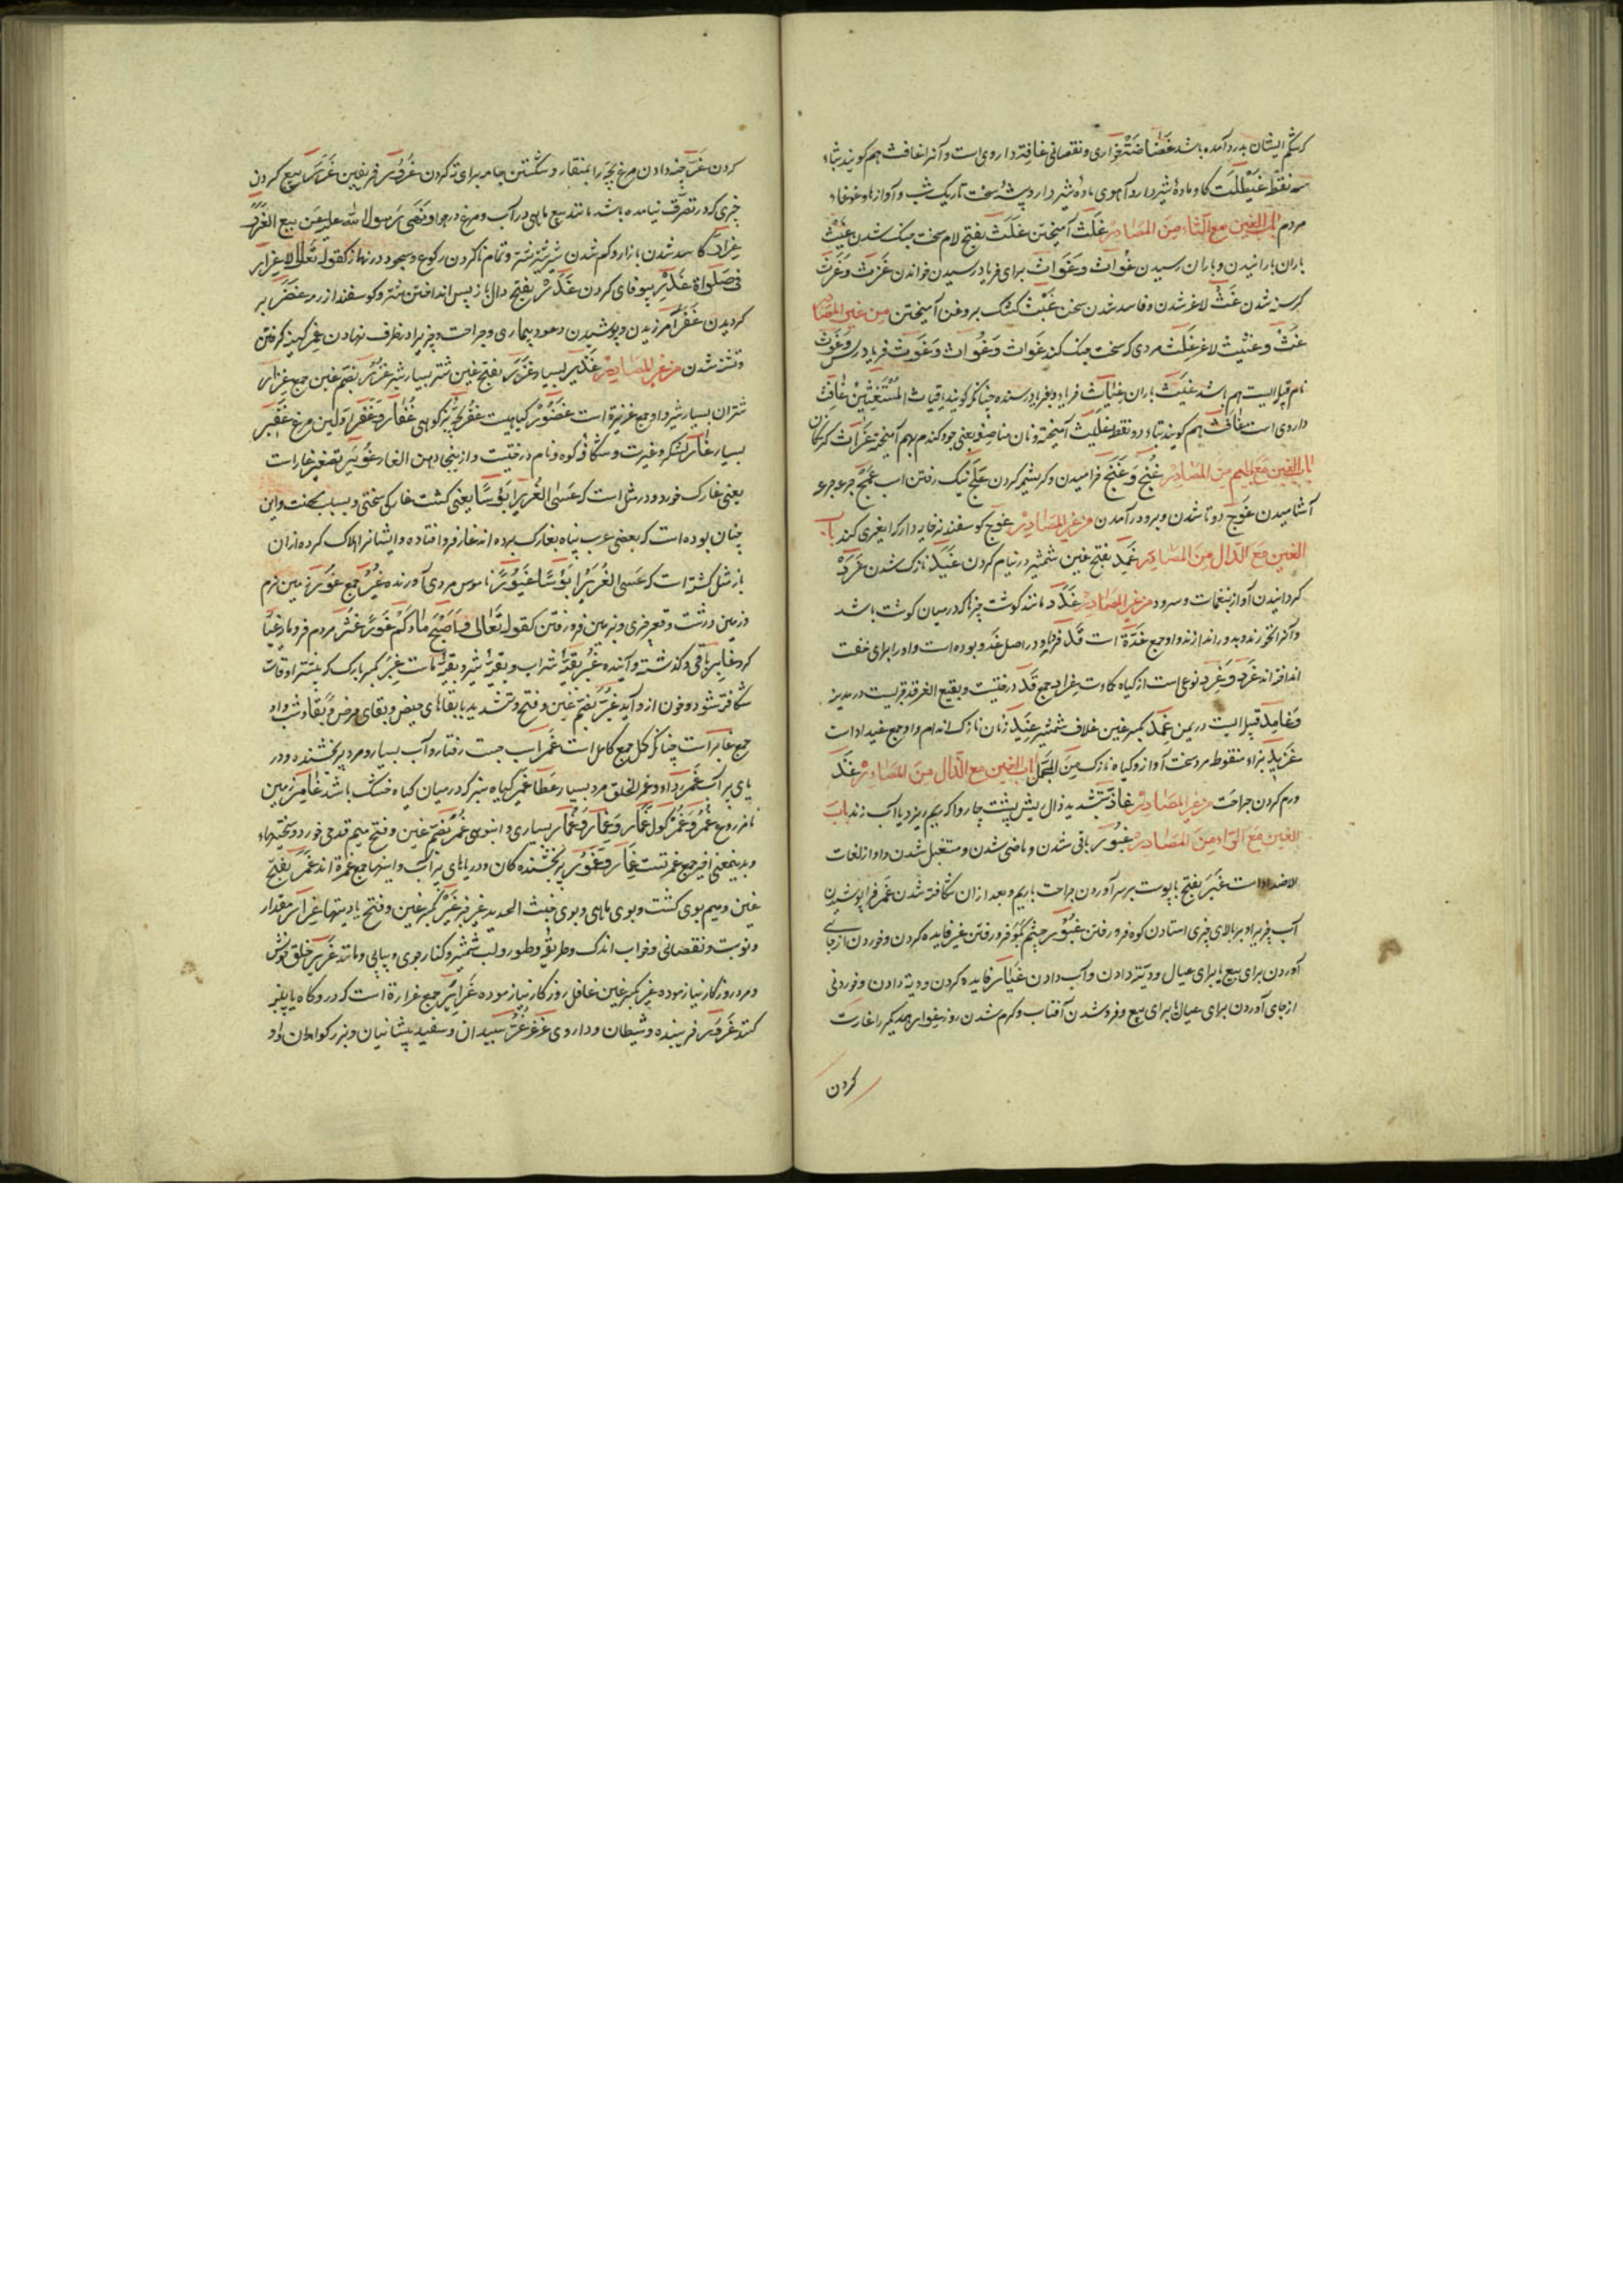 که شکم ایشان بدرد آمده باشد غَضَاضَتْ خواری و نقصانی غافِتْ داروی است و آنرا غافث هم کویند بثاء
سه نقطه غَیْطَلَتْ کاو ماده شیردار و آهوی ماده شیردار و پشهٔ سخت تاریک شب و آوازها و غوغاء
مردم باب الغین مع الثاء من المصادر غَلْثْ آمیختن غَلَثْ بفتح لام سخت جنک شدن غَیْثْ
باران بارانیدن و باران رسیدن غُوَاثْ وَ غَوَاثْ برای فریاد رسیدن خواندن غَرَثْ وَ غَرْثْ
کرسنه شدن غَثّ لاغر شدن و فاسد شدن سخن غَبْثْ کشک بروغن آمیختن من غیر المصادر
غَثّ وغثیث لاغر غَلِثْ مردی که سخت جنک کند غَوَاث وَ غُوَاث وَ غَوْث فریادرس وَ غَوْث
نام قبیله ایست هم باشد غَیْث باران غِیَاث فریاد و فریاد رسنده چنانکه کویند یا غیاث المستغیثین غافِث
داروی است غافت هم کویند بتاء دو نقطه غَلِیث آمیخته و نان مناصفه یعنی جو و کندم بهم آمیخته غَرَاث کرسنکان
باب الغین مع الجیم من المصادر غُنْج وَ غَنَج خرامیدن و کرشمه کردن غَلْج نیک رفتن اسب غَمْج جرعه جرعه
آشامیدن غَوْج دو تا شدن و برو در آمدن من غیر المصادر غوج کوسفند نر خایه دار که را بغیری کند باب
الغین مع الدال من المصادر غَمْد بفتح غین شمشیر در نیام کردن غَیَد نازک شدن غَرَدْ
کردانیدن آواز بنغمات و سرود من غیر المصادر غُدَد مانند کوشت چیزها که در میان کوشت باشد
و آنرا نخورند و بدور اندازند و او جمع غُدَّة است غَد فردا و در اصل غدو بوده است واو را برای خفت
انداخته اند غَرَد وَ غِرد نوعی است از کیاه کماوت غِراد جمع غرقد درختیست و بقیع الغرقد قبریست در مدینه
وَ غامِد قبیله ایست در یمن غِمْد بکسر غین غلاف شمشیر غِید زنان نازک اندام و او جمع غیداء است
غِزْیَد بزاء منقوطه مرد سخت آواز و کیاه نازک من المجمل باب الغین مع الذال من المصادر غَذّ
ورم کردن جراحت من غیر المصادر غاذّ بتشدید ذال ریش پشت چاروا که ریم ریزد یا آب زند باب
الغین مع الراء من المصادر غُبُور باقی شدن و ماضی شدن و مستقبل شدن و او از لغات
الاضداد است غَبَر بفتح با پوست بر سر آوردن جراحت با ریم و بعد از آن شکافته شدن غَمْر فرا پوشیدن
آب چیز را و بر بالای چیزی استادن کوه فرو رفتن غُؤُور چشم بکو فرو رفتن غیر فایده کردن و خوردن از جای
آوردن برای بیع یا برای عیال و دیت دادن و آب دادن غِیَار فایده کردن و دیه دادن و خوردنی
از جای آوردن برای عیال یا برای بیع و فرو شدن آفتاب و کرم شدن روز غوار همدیکر را غارت
کردن
کردن غَرّ چینه دادن مرغ بچه را بمنقار و شکستن جامه برای ته کردن غُرُور فریفتن غَرَر بیع کردن
چیزی که در تصرف نیامده باشد مانند بیع ماهی در آب و مرغ در هوا و نَهَی رسول الله علیه عن بیع الغَرَر
غِرار کاسد شدن بازار و کم شدن شیر شتر و تمام ناکردن رکوع و سجود در نماز کقوله تعالی لاغرار
فی صلواة غَدْر بیوفای کردن غَدَر بفتح دال باز پس انداختن شتر و کوسفند از رمه غضر بر
کردیدن غَفْر آمرزیدن و پوشیدن و عود بیماری و جراحت و چیز را در ظرف نهادن غِمر کینه کرفتن
و تشنه شدن من غیر المصادر غَدیر بسیار غَزْر بفتح غین شتر بسیار شیر غُزر بضم غین جمع غِزار
شتران بسیار شیر و او جمع غزیرة است غَضْوَر کیاهیست غُفْر بچه بز کوهی غُفار وَ غَفْر اولین مرغ غَفیر
بسیار غار لشکر و غیرت و شکاف کوه و نام درختیست و از ینجا دهن الغار غُوَیْر تصغیر غار است
یعنی غارک خورد و در مثل است که عَسَی الغُوَیْر اَبْؤُسًا یعنی کشت غارکی سختی و بسبب محنت و این
چنان بوده است که بعضی عرب پناه بغارک برده اند غار فرو افتاده و ایشانرا هلاک کرده از ان
باز مثل کشته است که عسی الغویر ابؤسا غَیُور با ناموس مردی آورنده غُیُر جمع غَوْر زمین نرم
و زمین درشت و قعر چیزی و بزمین فرو رفتن کقوله تعالی فَاَصْبَحَ ماؤکم غَوْرًا غُثْر مردم فرومایه غبار
کرد غابِر باقی و کذشته و آینده غُبْر بقیهٔ شراب و بقیهٔ شیر و بقیهٔ ماست غِبَر بکسر با رک که بیشتر اوقات
شکافته شود و خون ازو آید غُبَّر بضم غین و فتح و تشدید با بقاهای حیض و بقای مرض و بقاء شب و او
جمع غابر است چنانکه کمل جمع کامل است غَمْر اسب جست رفتار و آب بسیار و مرد پر بخشنده و در
یای پر آب غَمْر ردا و غمر الخلق مرد بسیار عطا غَمیر کیاه سبز که در میان کیاه خشک باشد غامِر زمین
نامزروع غُمْر وَ غَمْر کول غَمار وَ غِمار وَ غُمار بسیاری و انبوهی غُمَر بضم غین و فتح میم قدحی خورد و سختیهاء
و بدینمعنی اخیر جمع غمرتست غِمار و غُمُور پر بخشنده کان و دریاهای پر آب و اینها جمع غمرة اند غَمَر بفتح
غین و میم بوی کشت و بوی ماهی و بوی خبث الحدید غیر نه غِیَر بکسر غین و فتح یا دیتها غِرار مقدار
و نوبت و نقصانی و خواب اندک و طریق و طور و لب شمشیر و کنار جوی و پیاپی و مانند غَریر خلق خوش
و مرد روزکار نیازموده غِر بکسر غین غافل روزکار نیازموده غَرایِر جمع غرارة است که درو کاه یا پنبه
کنند غَرُور فریبنده و شیطان و داروی غرغره غُرّ سپیدان و سفید پیشانیان و بزرکواران و او